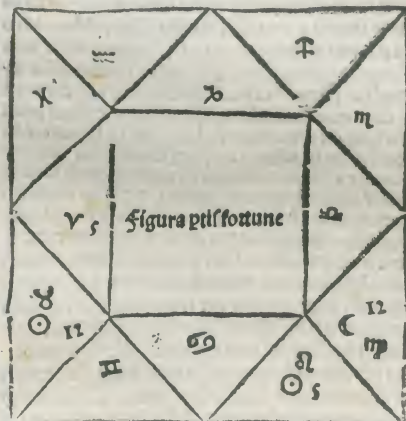 ♒ ♐
♓ ♑ ♏
♈ 5 Figura ꝑtiſ fortune ♎
♉
☉ 12
☾ 12
♍
♊ ♋ ♌
☉ 5